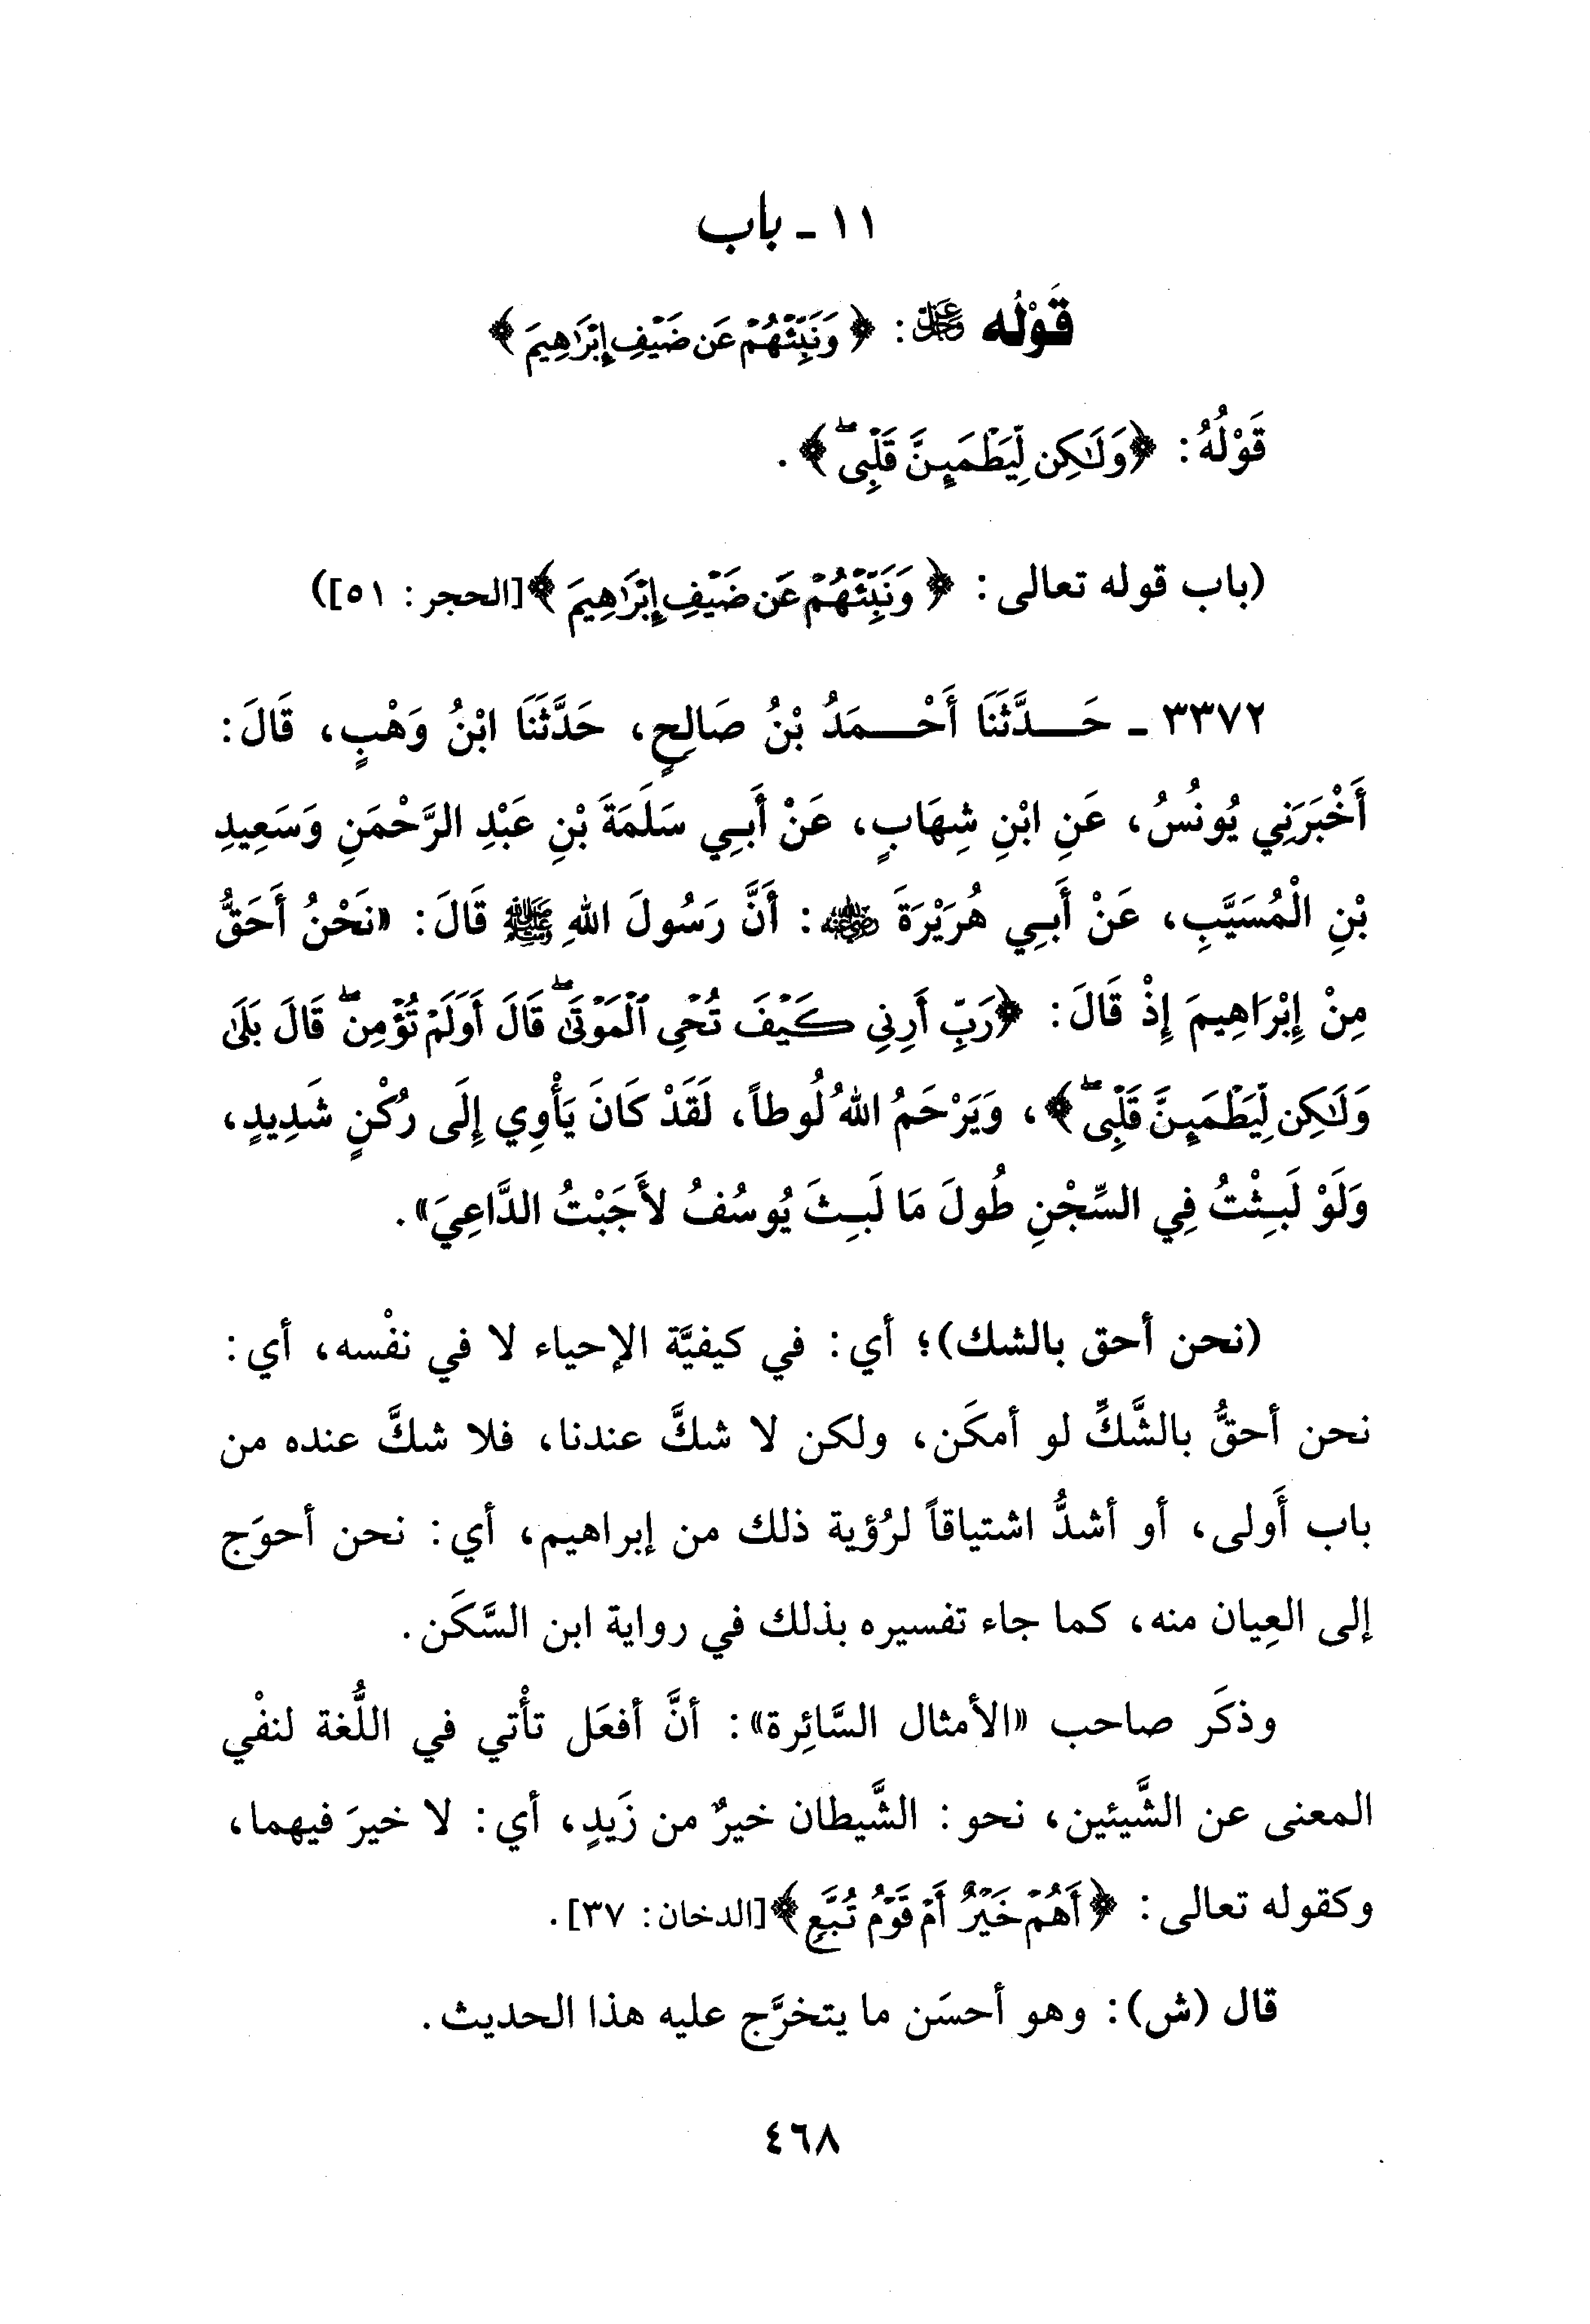 ١١ - باب
قَوْلُه ﷿: ﴿وَنَبِّئْهُمْ عَن ضَيْفِ إِبْرَٰهِيمَ﴾
قَوْلُهُ: ﴿وَلَٰكِن لِّيَطْمَئِنَّ قَلْبِى ۖ﴾.
(باب قوله تعالى: ﴿وَنَبِّئْهُمْ عَن ضَيْفِ إِبْرَٰهِيمَ﴾[الحجر: ٥١])
٣٣٧٢ - حَـــدَّثَنَا أَحْـــمَدُ بْنُ صَالِحٍ، حَدَّثَنَا ابْنُ وَهْبٍ، قَالَ:
أَخْبَرَنِي يُونُسُ، عَنِ ابْنِ شِهَابٍ، عَنْ أَبِي سَلَمَةَ بْنِ عَبْدِ الرَّحْمَنِ وَسَعِيدِ
بْنِ الْمُسَيَّبِ، عَنْ أَبِي هُرَيْرَةَ ﵁: أَنَّ رَسُولَ اللهِ ﷺ قَالَ: «نَحْنُ أَحَقُّ
مِنْ إِبْرَاهِيمَ إِذْ قَالَ: ﴿رَبِّ أَرِنِي كَيْفَ تُحْىِ ٱلْمَوْتَىٰ ۖ قَالَ أَوَلَمْ تُؤْمِن ۖ قَالَ بَلَىٰ
وَلَٰكِن لِّيَطْمَئِنَّ قَلْبِى ۖ﴾، وَيَرْحَمُ اللهُ لُوطاً، لَقَدْ كَانَ يَأْوِي إِلَى رُكْنٍ شَدِيدٍ،
وَلَوْ لَبِثْتُ فِي السِّجْنِ طُولَ مَا لَبِثَ يُوسُفُ لأَجَبْتُ الدَّاعِيَ».
(نحن أحق بالشك)؛ أي: في كيفيَّة الإحياء لا في نفْسه، أي:
نحن أحقُّ بالشَّكِّ لو أمكَن، ولكن لا شكَّ عندنا، فلا شكَّ عنده من
باب أَولى، أو أشدُّ اشتياقاً لرُؤية ذلك من إبراهيم، أي: نحن أحوَج
إلى العِيان منه، كما جاء تفسيره بذلك في رواية ابن السَّكَن.
وذكَر صاحب «الأمثال السَّائِرة»: أنَّ أفعَل تأْتي في اللُّغة لنفْي
المعنى عن الشَّيئين، نحو: الشَّيطان خيرٌ من زَيدٍ، أي: لا خيرَ فيهما،
وكقوله تعالى: ﴿أَهُمْ خَيْرٌ أَمْ قَوْمُ تُبَّعٍ﴾[الدخان: ٣٧].
قال (ش): وهو أحسَن ما يتخرَّج عليه هذا الحديث.
٤٦٨